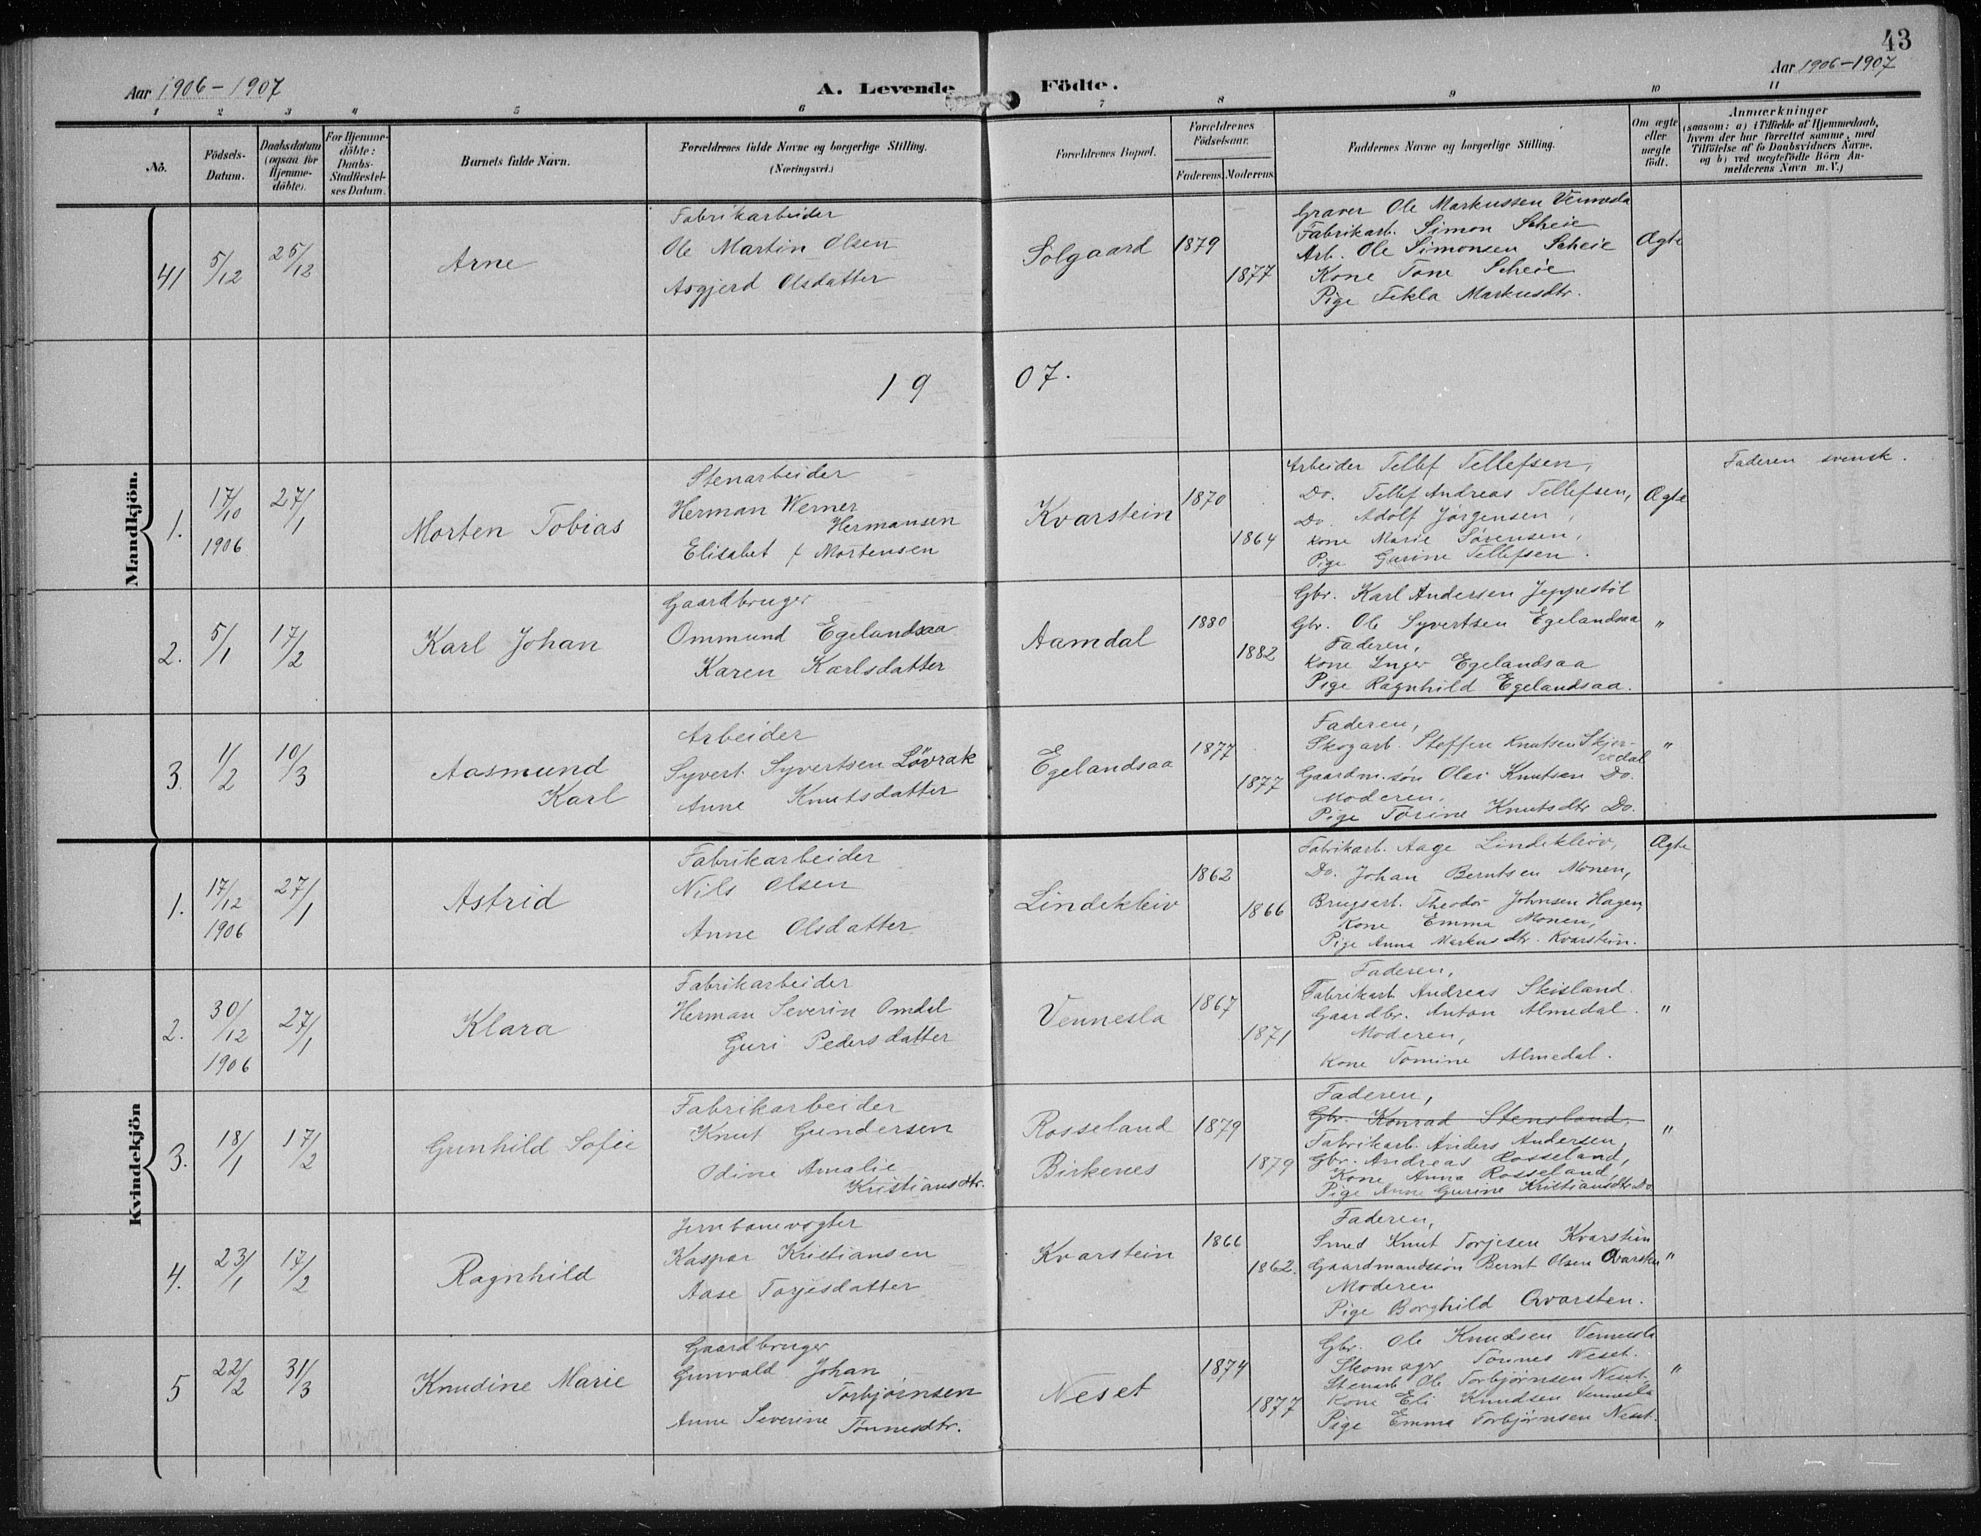 43
Aar 1906-1907
A. Levende Födte.
Aar 1906-1907
1 2 3 4 5 6 7 8 9 10 11
No.
Födsels-Datum.
Daabsdatum (ogsaa for Hjemme-döbte).
For Hjemme-döbte: Daabs-Stadfæstel-ses Datum.
Barnets fulde Navn.
Forældrenes fulde Navne og borgerlige Stilling. (Næringsvei.)
Forældrenes Bopæl.
Forældrenes Födselsaar.
Faderens. Moderens.
Faddernes Navne og borgerlige Stilling.
Om ægte eller uægte födt.
Anmærkninger (saasom: a) i Tilfælde af Hjemmedaab, hvem der har forrettet samme, med Tilföielse af to Daabsvidners Navne, og b) ved uægtefödte Börn An-melderens Navn m. V.)
Mandkjön.
41 5/12 26/12 Arne
Fabrikarbeider
Ole Martin Olsen
Asgjerd Olsdatter
Solgaard 1879 1877
Graver Ole Markussen Vennesla
Fabrikarb. Simon Scheie
Arb. Ole Simonsen Scheie
Kone Tone Scheie
Pige Tekla Markusdtr.
Ægte
1907.
1. 17/10 1906 27/1 Morten Tobias
Stenarbeider
Herman Werner
Hermansen
Elisabet f Mortensen
Kvarstein 1870 1864
Arbeider Tellef Tellefsen,
Do. Tellef Andreas Tellefsen,
Do. Adolf Jørgensen,
Kone Marie Sørensen,
Pige Gurine Tellefsen.
Ægte
Faderen svensk.
2. 5/1 17/2 Karl Johan
Gaardbruger
Ommund Egelandsaa
Karen Karlsdatter
Aamdal 1880 1882
Gbr. Karl Andersen Jeppestöl
Gbr. Ole Syvertsen Egelandsaa
Faderen,
Kone Inger Egelandsaa
Pige Ragnhild Egelandsaa.
"
3. 1/2 10/3 Aasmund
Karl
Arbeider
Syvert Syvertsen Lövrak
Anne Knutsdatter
Egelandsaa 1877 1877
Faderen,
Skogarb. Steffen Knutsen Skjer-
redal
Gaardm.søn Olai Knutsen Do.
Moderen,
Pige Torine Knutsdtr Do.
"
Kvindekjön
1. 17/12 1906 27/1 Astrid
Fabrikarbeider
Nils Olsen
Anne Olsdatter
Lindekleiv 1862 1866
Fabrikarb. Aage Lindekleiv,
Do. Johan Berntsen Monen,
Brugsarb. Theodor Johnsen Hagen,
Kone Emma Monen,
Pige Anna Markusdtr. Kvarstein.
Ægte
2. 30/12 1906 27/1 Klara
Fabrikarbeider
Herman Severin Omdal
Guri Pedersdatter
Vennesla 1867 1871
Faderen,
Fabrikarb Andreas Skisland.
Gaardbr. Anton Almedal.
Moderen,
Kone Tomine Almedal.
"
3. 18/1 17/2 Gunhild Sofie
Fabrikarbeider
Knut Gundersen
Odine Amalie
Kristiansdtr.
Rosseland
Birkenes
1879 1879
Faderen,
Gbr. Konrad Stensland,
Fabrikarb. Anders Andersen,
Gbr. Andreas Rosseland,
Kone Anna Rosseland,
Pige Anne Gurine Kristiansdtr Do
"
4. 23/1 17/2 Ragnhild
Jernbanevogter
Kaspar Kristiansen
Aase Torjesdatter
Kvarstein 1866 1862.
Faderen,
Smed Knut Torjesen Kvarstein
Gaardmandssön Bernt Olsen Qvarsten
Moderen
Pige Borghild Qvarsten.
"
5 22/2 31/3 Knudine Marie
Gaardbruger
Gunvald Johan
Torbjørnsen
Anne Severine
Tönnesdtr.
Neset 1874 1877
Gbr. Ole Knudsen Vennesla
Skomagr Tönnes Neset.
Stenarb Ole Torbjørnsen Neset.
Kone Eli Knudsen Vennesla
Pige Emma Torbjørnsen Neset.
"